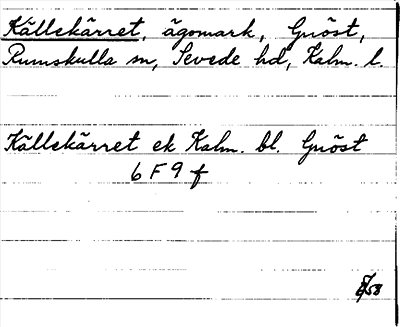 Källekärret, ägomark, Gnöst,
Rumskulla sn, Sevede hd, Kalm. l.
Källekärret ek Kalm. bl. Gnöst
6 F 9 f